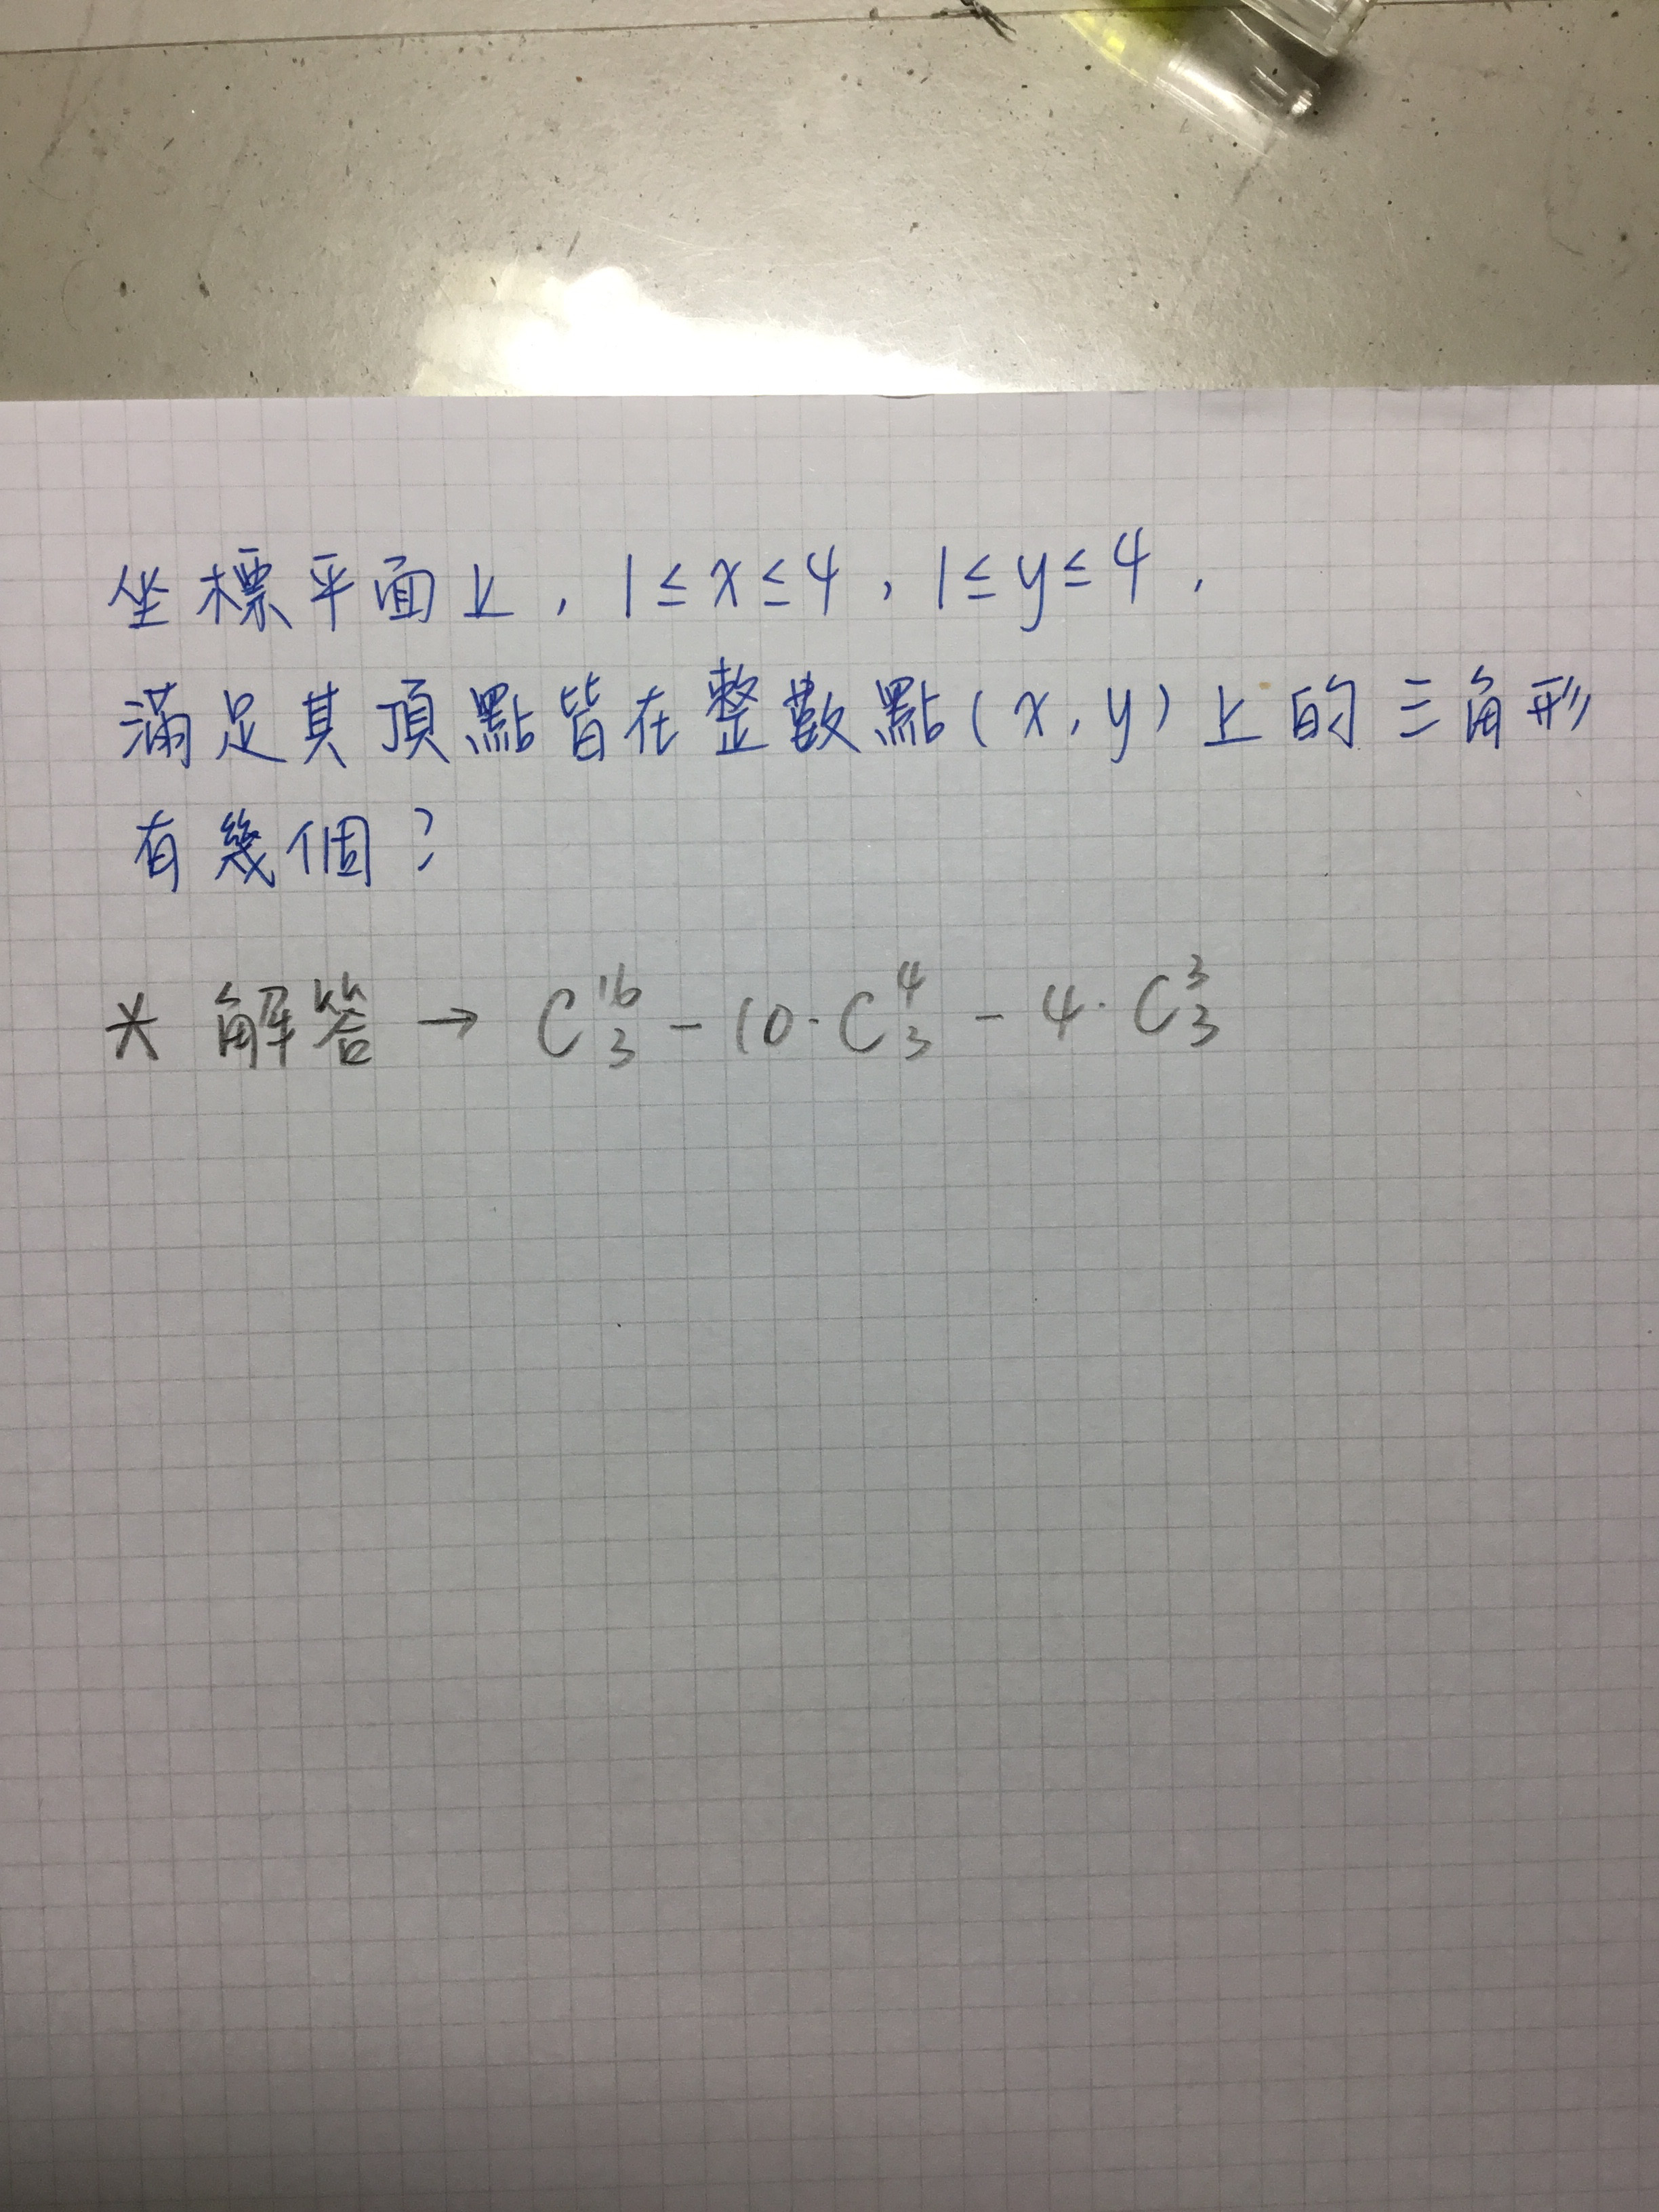 坐標平面上，1≤x≤4，1≤y≤4，
滿足其頂點皆在整數點(x,y)上的三角形
有幾個？
* 解答 → C¹⁶₃ - 10·C⁴₃ - 4·C³₃